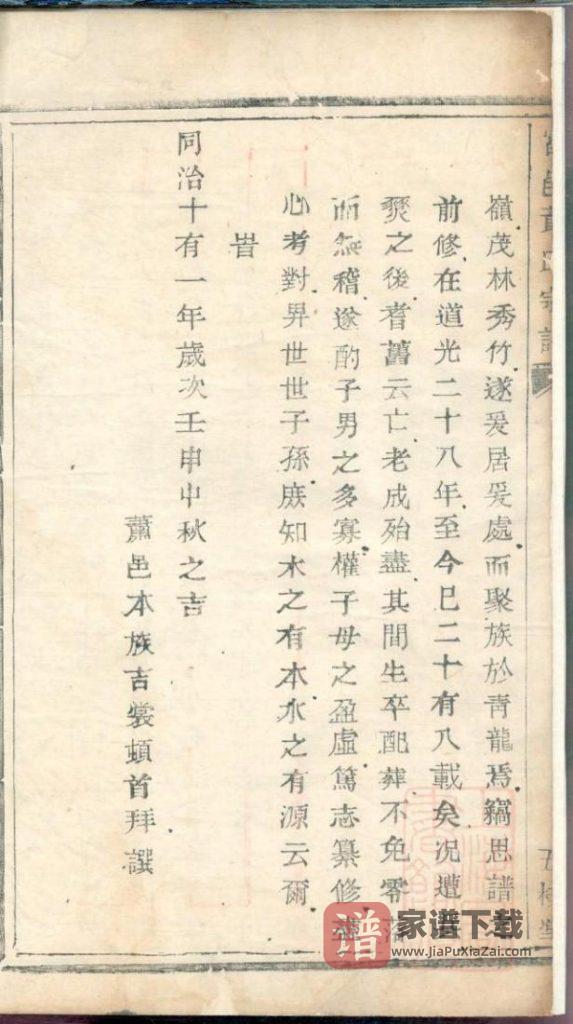 嶺茂林秀竹遂爰居爰處而聚族於靑龍焉竊思譜
前修在道光二十八年至今巳二十有八載矣況遭
燹之後耆舊云亡老成殆盡其間生卒配葬不免零落
而無稽遂酌子男之多寡權子母之盈虛篤志纂修
心考對畀世世子孫庻知木之有本水之有源云爾
旹
同治十有一年歲次壬申中秋之吉
蕭邑本族吉裳頓首拜譔
邑 氏宗譜
譜 家谱下载
www.JiaPuXiaZai.com